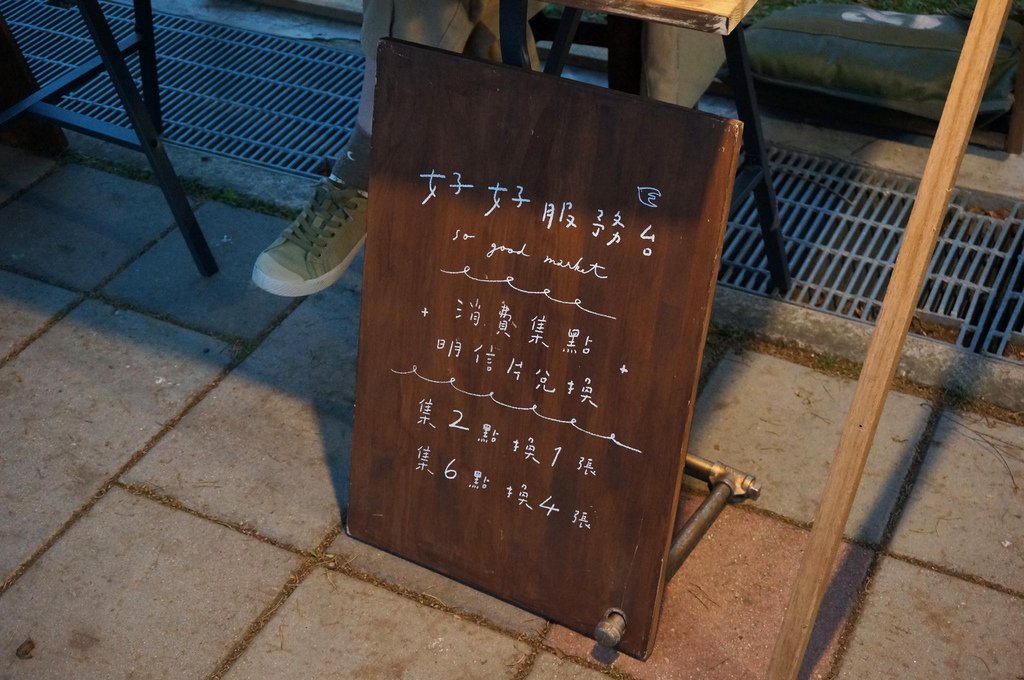 好好服務台
so good market
消費集點
明信片兌換
集2點換1張
集6點換4張